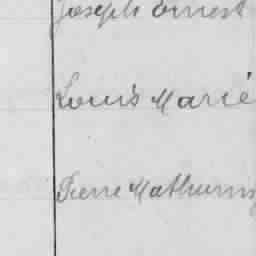 Joseph Ernest
Louis Marie
Pierre Mathurin